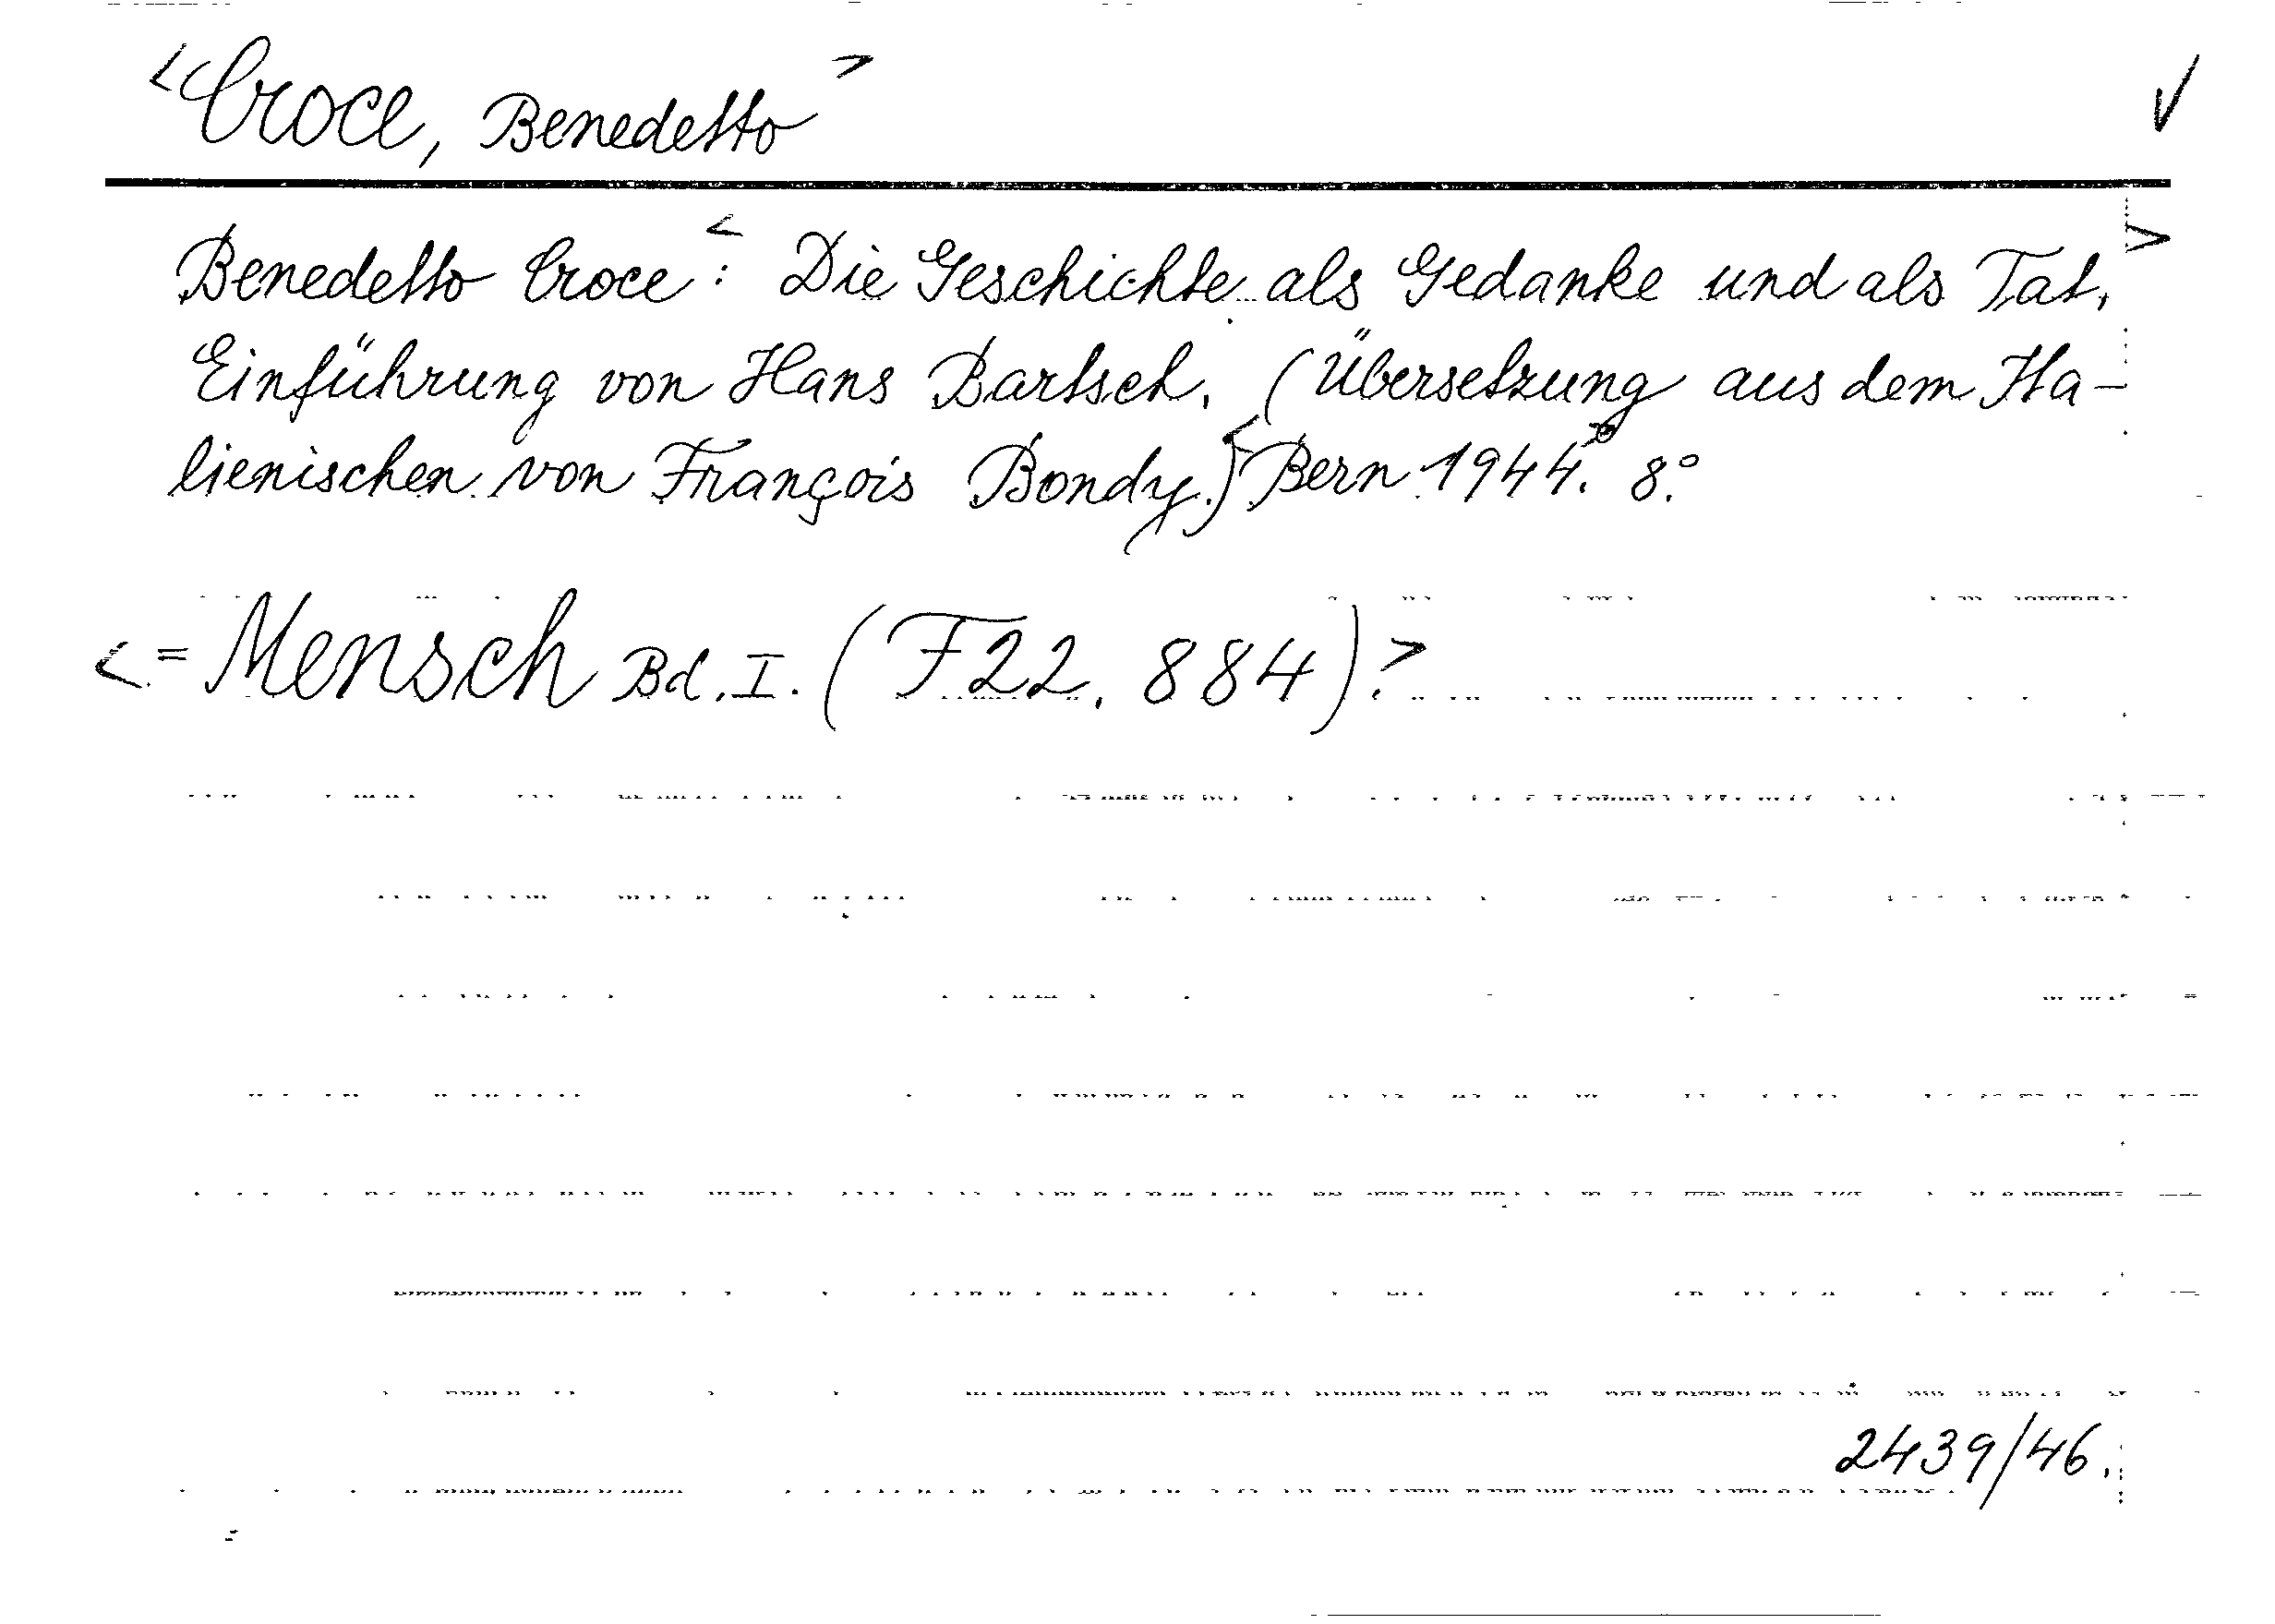 <Croce, Benedetto> ✓
Benedetto Croce: <Die Geschichte als Gedanke und als Tat.>
Einführung von Hans Bartsch. (Übersetzung aus dem Ita-
lienischen von François Bondy.) <Bern 1944.> 8.°
<= Mensch Bd. I. (F22, 884).>
2439/46.